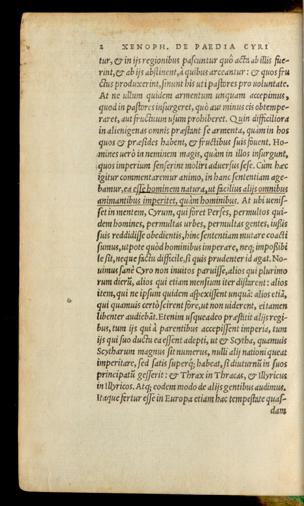 2 XENOPH. DE PAEDIA CYRI
tur, & in ijs regionibus pascuntur quò actæ ab illis fue-
rint, & ab ijs abstinent, à quibus arceantur: & quos fru
ctus produxerint, sinunt his uti pastores pro uoluntate.
At ne ullum quidem armentum unquam accepimus,
quod in pastores insurgeret, quò aut minus eis obtempe-
raret, aut fructuum usum prohiberet. Quin difficiliora
in alienigenas omnis præstant se armenta, quàm in hos
quos & præsides habent, & fructibus suis fouent. Ho-
mines uerò in neminem magis, quàm in illos insurgunt,
quos imperium senserint moliri aduersus sese. Cum hæc
igitur commentaremur animo, in hanc sententiam age-
bamur, ea esse hominem natura, ut facilius alijs omnibus
animantibus imperitet, quàm hominibus. At ubi uenis-
set in mentem, Cyrum, qui foret Perses, permultos qui-
dem homines, permultas urbes, permultas gentes, iussis
suis reddidisse obedientis, hinc sententiam mutare coacti
sumus, utpote quòd hominibus imperare, neq; impoßibi
le sit, neque factu difficile, si quis prudenter id agat. No-
uimus sanè Cyro non inuitos paruisse, alios qui plurimo
rum dierũ, alios qui etiam mensium iter distarent: alios
item, qui ne ipsum quidem aspexissent unquã: alios etiã,
qui quamuis certò scirent fore, ut non uiderent, ei tamen
libenter audiebãt. Etenim usqueadeo præstitit alijs regi-
bus, tum ijs qui à parentibus accepissent imperia, tum
ijs qui suo ductu ea essent adepti, ut & Scytha, quamuis
Scytharum magnus sit numerus, nulli alij nationi queat
imperitare, sed satis superq; habeat, si diuturnũ in suos
principatũ gesserit: & Thrax in Thracas, & Illyricus
in Illyricos. Atq; eodem modo de alijs gentibus audimus.
Itaque fertur esse in Europa etiam hac tempestate quas-
dam